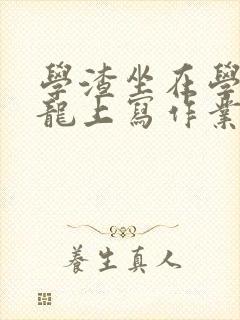 學渣坐在學
龍上寫作業
養生真人